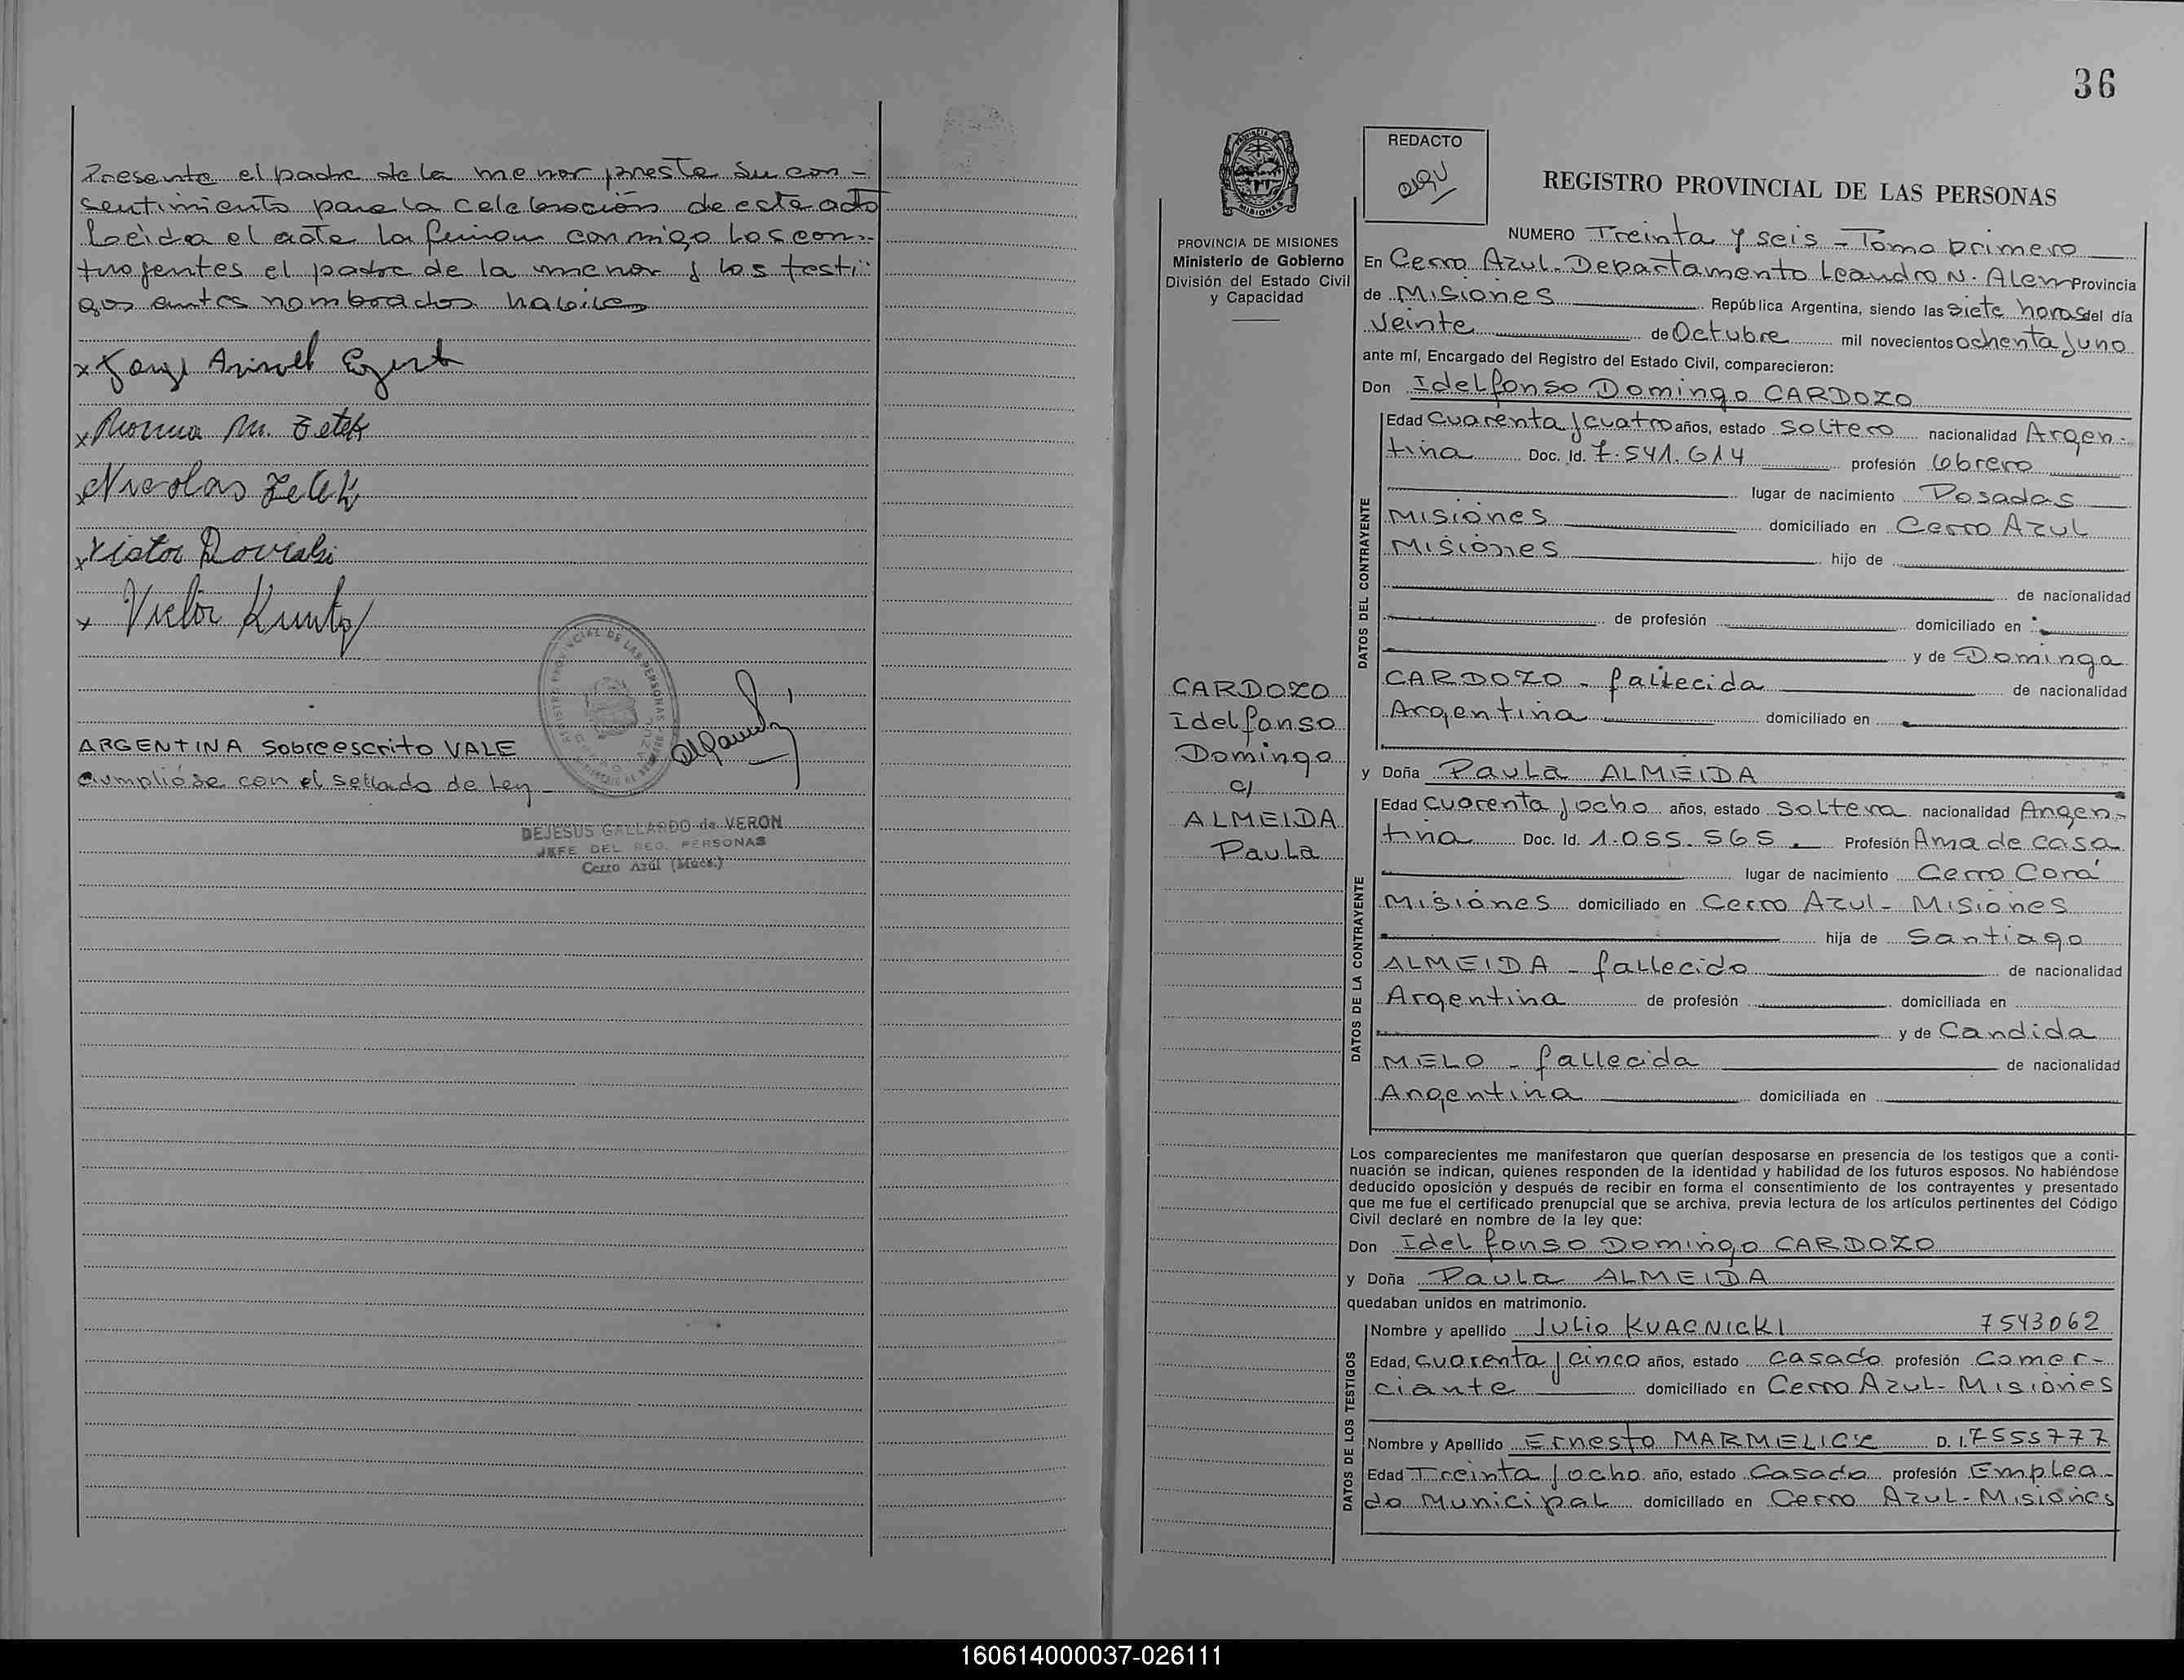 Presente el padre de la menor presta su con-
sentimiento para la celebración de este acto
Leída el acta la firman conmigo los con-
trayentes el padre de la menor y los testi-
gos antes nombrados habiles
x Jorge Egert
x Norma M. Zetek
x Nicolas Zetek
x Victor
x Victor Kuntz
REGISTRO PROVINCIAL DE LAS PERSONAS
ARGENTINA Sobreescrito VALE
Cumplióse con el sellado de Ley -
DEJESUS GALLARDO de VERON
JEFE DEL REG. PERSONAS
Cerro Azúl (Mnes.)
36
PROVINCIA DE MISIONES
Ministerio de Gobierno
División del Estado Civil
y Capacidad
CARDOZO
Idelfonso
Domingo
c/
ALMEIDA
Paula
REDACTO
REGISTRO PROVINCIAL DE LAS PERSONAS
NUMERO Treinta y seis - Tomo primero
En Cerro Azul - Departamento Leandro N. Alem Provincia
de Misiones República Argentina, siendo las siete horas del día
Veinte de Octubre mil novecientos ochenta y uno
ante mí, Encargado del Registro del Estado Civil, comparecieron:
Don Idelfonso Domingo CARDOZO
DATOS DEL CONTRAYENTE
Edad Cuarenta y cuatro años, estado Soltero nacionalidad Argen-
tina Doc. Id. 7.541.614 profesión Obrero
lugar de nacimiento Posadas
Misiones domiciliado en Cerro Azul
Misiones hijo de
de nacionalidad
de profesión domiciliado en
y de Dominga
CARDOZO - fallecida de nacionalidad
Argentina domiciliado en
y Doña Paula ALMEIDA
DATOS DE LA CONTRAYENTE
Edad Cuarenta y ocho años, estado Soltera nacionalidad Argen-
tina Doc. Id. 1.055.565 Profesión Ama de casa
lugar de nacimiento Cerro Corá
Misiones domiciliado en Cerro Azul - Misiones
hija de Santiago
ALMEIDA - fallecido de nacionalidad
Argentina de profesión domiciliada en
y de Candida
MELO - fallecida de nacionalidad
Argentina domiciliada en
Los comparecientes me manifestaron que querían desposarse en presencia de los testigos que a conti-
nuación se indican, quienes responden de la identidad y habilidad de los futuros esposos. No habiéndose
deducido oposición y después de recibir en forma el consentimiento de los contrayentes y presentado
que me fue el certificado prenupcial que se archiva, previa lectura de los artículos pertinentes del Código
Civil declaré en nombre de la ley que:
Don Idelfonso Domingo CARDOZO
y Doña Paula ALMEIDA
quedaban unidos en matrimonio.
DATOS DE LOS TESTIGOS
Nombre y apellido Julio KUACNICKI 7543062
Edad, cuarenta y cinco años, estado casado profesión Comer-
ciante domiciliado en Cerro Azul - Misiones
Nombre y Apellido Ernesto MARMELICZ D.I. 7555777
Edad Treinta y ocho año, estado Casado profesión Emplea-
do Municipal domiciliado en Cerro Azul - Misiones
160614000037-026111